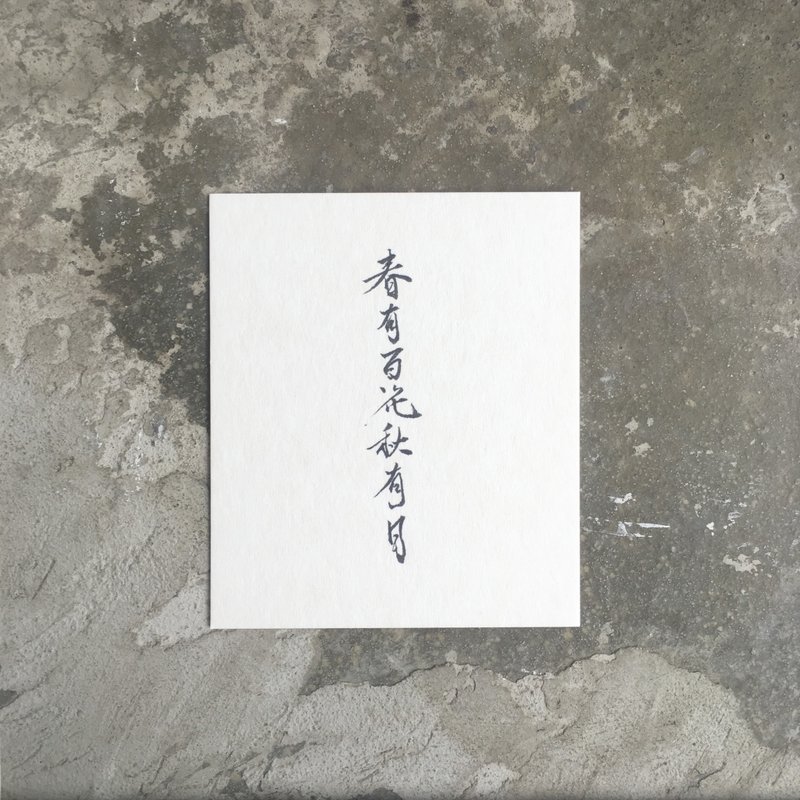 春有百花秋有月